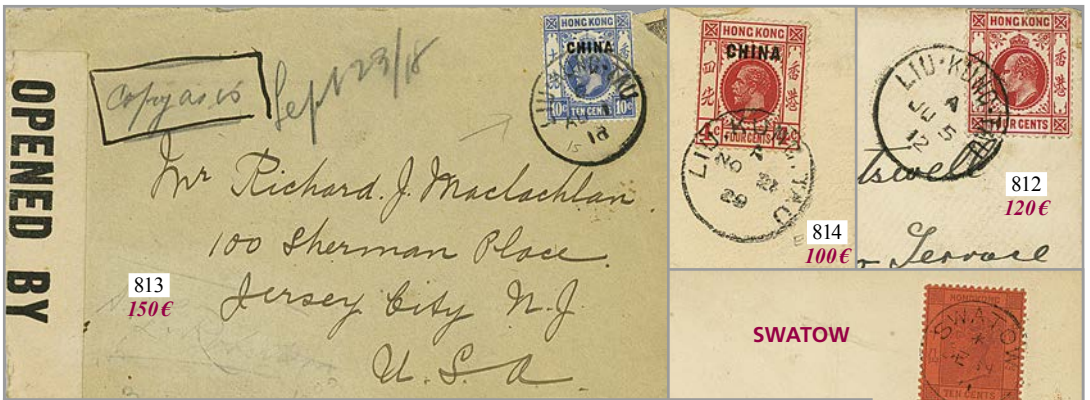 OPENED BY
Copy as is
Sept 23/18
HONG KONG
CHINA
10c TEN CENTS 10c
18
Mr Richard J. Maclachlan.
100 Sherman Place.
Jersey City N.J
U.S.A.
813
150 €
HONG KONG
CHINA
香港
4c FOUR CENTS
LIU KUNG TAU
NO 22
29
814
100 €
HONG KONG
香港
FOUR CENTS
LIU-KUNG-TAU
A
JU 5
12
Terrace
812
120 €
SWATOW
HONG KONG
SWATOW
TEN CENTS